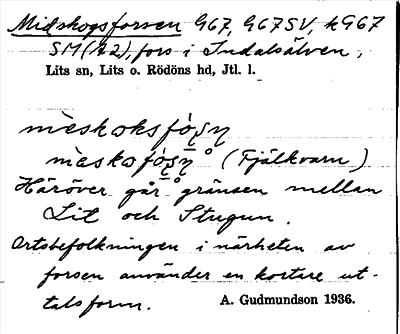 Midskogsforsen G67, G67SV, kG67
SM(A2), fors i Indalsälven,
Lits sn, Lits o. Rödöns hd, Jtl. l.
mèskoksfó̧ʂn̥
mèskofó̧ʂn̥ (Fjälkvarn)
Häröver går gränsen mellan
Lit och Stugun.
Ortsbefolkningen i närheten av
forsen använder en kortare ut-
talsform.
A. Gudmundson 1936.